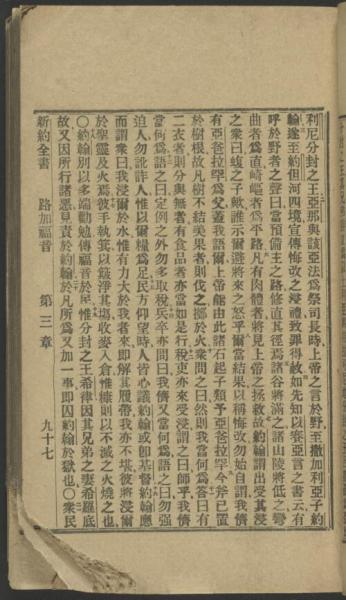 利尼分封之王亞那與該亞法爲祭司長時上帝之言於野至撒加利亞子約
翰遂至約但河四境宣傳悔改之浸禮致罪得赦如先知以賽亞言之書云有
呼於野者之聲曰當預備主之路修直其徑焉諸谷將滿之諸山陵將低之彎
曲者爲直崎嶇者爲平路凡有肉體者將見上帝之拯救故約翰謂出受其浸
之衆曰蝮之子歟誰示爾避將來之怒乎爾當結果以稱悔改勿始自謂我儕
有亞爸拉罕爲父蓋我語爾上帝能由此諸石起子類予亞爸拉罕今斧已置
於樹根故凡樹不結美果者則伐之擲於火衆問之曰然則我當何爲答曰有
二衣者則分與無者有食品者亦當如是行稅吏亦來受浸謂之曰師乎我儕
當何爲語之曰定例之外勿多取稅兵卒亦問曰我儕又當何爲語之曰勿强
迫人勿訛詐人惟以爾糧爲足民方仰望時人皆心議約翰或卽基督約翰應
而謂衆曰我浸爾於水惟有力大於我者來卽解其履帶我亦不堪彼將浸爾
於聖靈及火焉彼手執箕以簸淨其塲收麥入倉惟糠則以不滅之火燒之也
〇約翰別以多端勸勉傳福音於民惟分封之王希律因其兄弟之妻希羅底
故又因所行諸惡見責於約翰於凡所爲又加一事卽囚約翰於獄也〇衆民
新約全書 路加福音 第三章 九十七